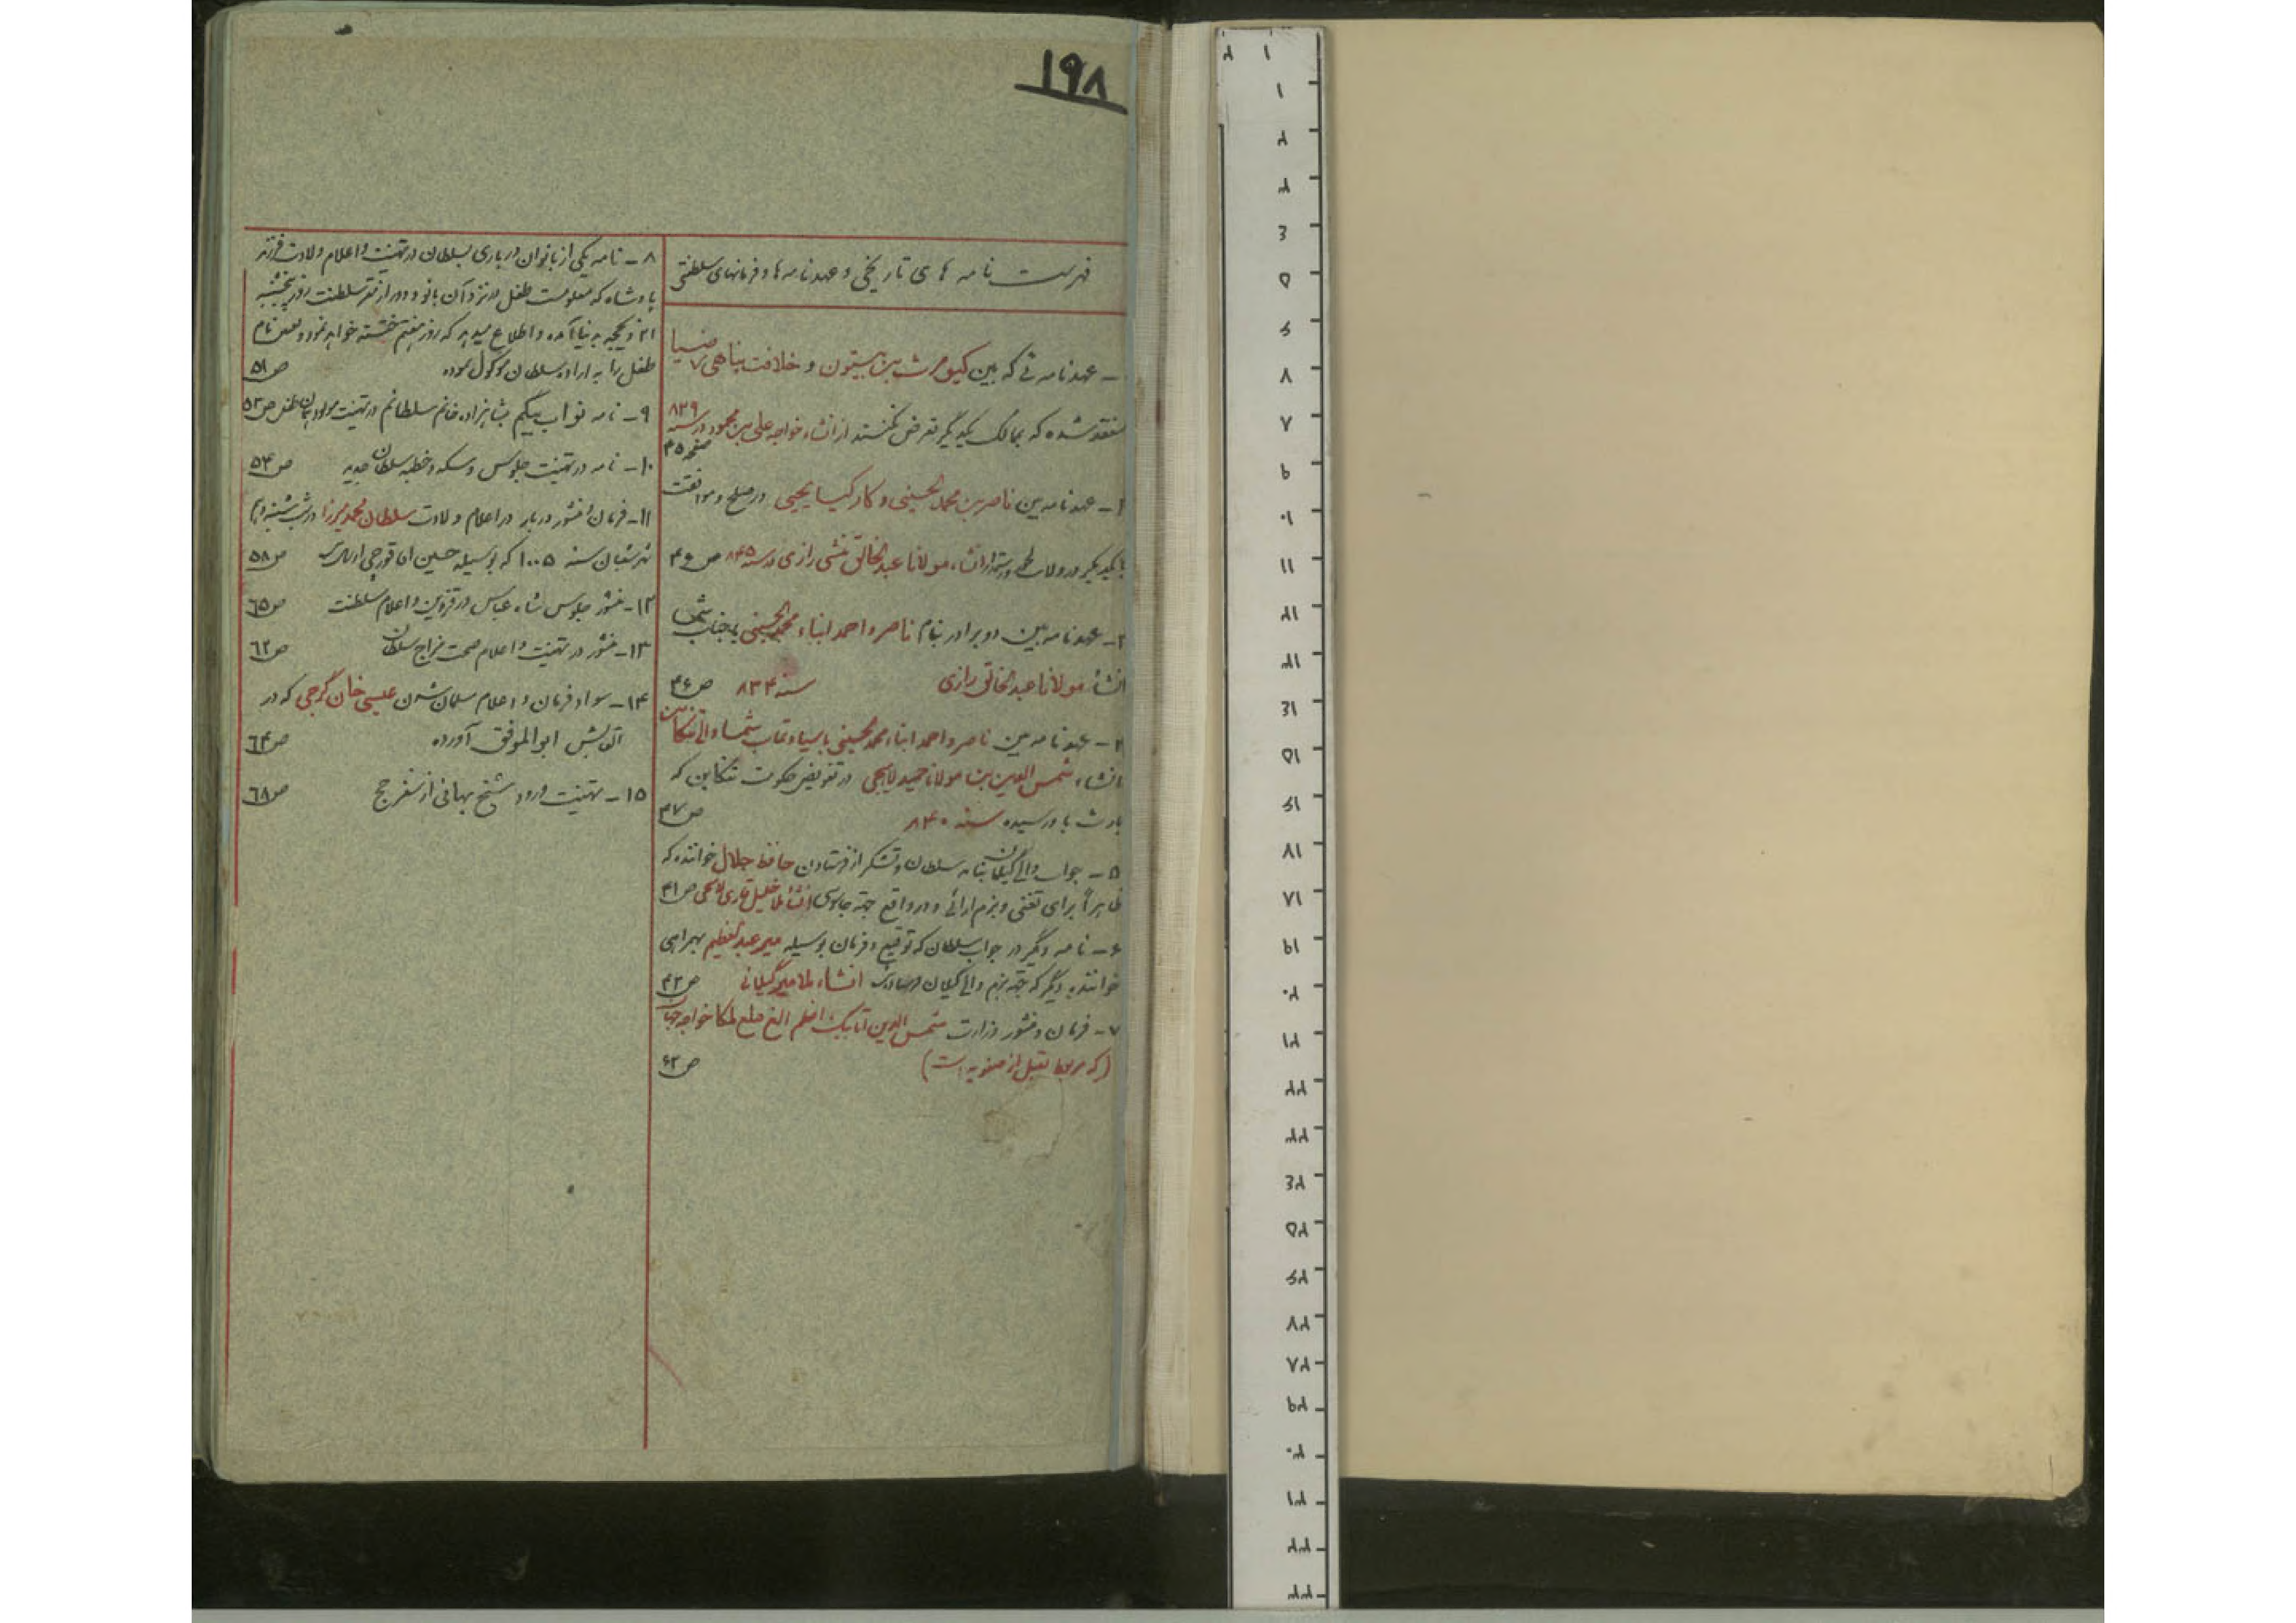 ۱۹۸
فهرست نامه های تاریخی و عهدنامه ها و فرمانهای سلطنتی
– عهدنامه ئی که بین کیومرث بن بیستون و خلافت پناهی ضیا
منعقد شده که بممالک یکدیگر تعرض نکنند از انشاء خواجه علی بن محمود در سنه ۸۲۹
صفحه ۴۵
۲– عهدنامه بین ناصر بن محمد الحسینی و کارکیا یحیی در صلح و موافقت
با یکدیگر در ولات انشاء مولانا عبدالخالق منشی رازی در سنه ۸۴۵ ص ۴۶
۳– عهدنامه بین دو برادر بنام ناصر و احمد ابناء محمد الحسینی
انشاء مولانا عبدالخالق رازی سنه ۸۳۴ ص ۴۶
۴– عهدنامه بین ناصر و احمد ابناء محمد الحسینی با سیادتمآب والی تنکابن
انشاء شمس الدین بن مولانا حمید لاهیجی در تفویض حکومت تنکابن که
بارث باو رسیده سنه ۸۴۰ ص ۴۷
۵– جواب والی گیلان بنامه سلطان و تشکر از فرستادن حافظ جلال خواننده که
ظاهراً برای تغنی و بزم آرائی و در واقع جهة جاسوسی انشاء ملا خلیل قاری ص ۴۱
۶– نامه دیگر در جواب سلطان که توقیع و فرمان بوسیله میر عبدالعظیم بهمراهی
خواننده دیگر که جهة بزم والی گیلان انشاء ملا میر گیلانی ص ۴۳
۷– فرمان و منشور وزارت شمس الدین اتابیک اعظم الغ خواجه جهان
(که مربوط بقبل از صفویه است) ص ۶۳
۸– نامه یکی از بانوان درباری بسلطان در تهنیت و اعلام ولادت فرزند
پادشاه که معلومست طفل در نزد آن بانو و دور از مقر سلطنت روز پنجشنبه
۲۱ ذیحجه بدنیا آمده و اطلاع میدهد که روز هفتم ختنه خواهد نمود و تعیین نام
طفل را به اراده سلطان موکول نموده ص ۵۱
۹– نامه نواب بیگم بشاهزاده خانم سلطانم در تهنیت مولود همان طفل ص ۵۳
۱۰– نامه در تهنیت جلوس و سکه و خطبه سلطان جدید ص ۵۴
۱۱– فرمان و منشور دربار در اعلام ولادت سلطان محمد میرزا در شب شنبه
شهر شعبان سنه ۱۰۰۵ که بوسیله حسین آقا قورچی ص ۵۸
۱۲– منشور جلوس شاه عباس در قزوین و اعلام سلطنت ص ٦٥
۱۳– منشور در تهنیت و اعلام صحت مزاج سلطان ص ٦٢
۱۴– سواد فرمان و اعلام مسلمان شدن عیسی خان گرجی که در
القابش ابوالموفق آورده ص ٦٤
۱۵– تهنیت ورود شیخ بهائی از سفر حج ص ٦٨